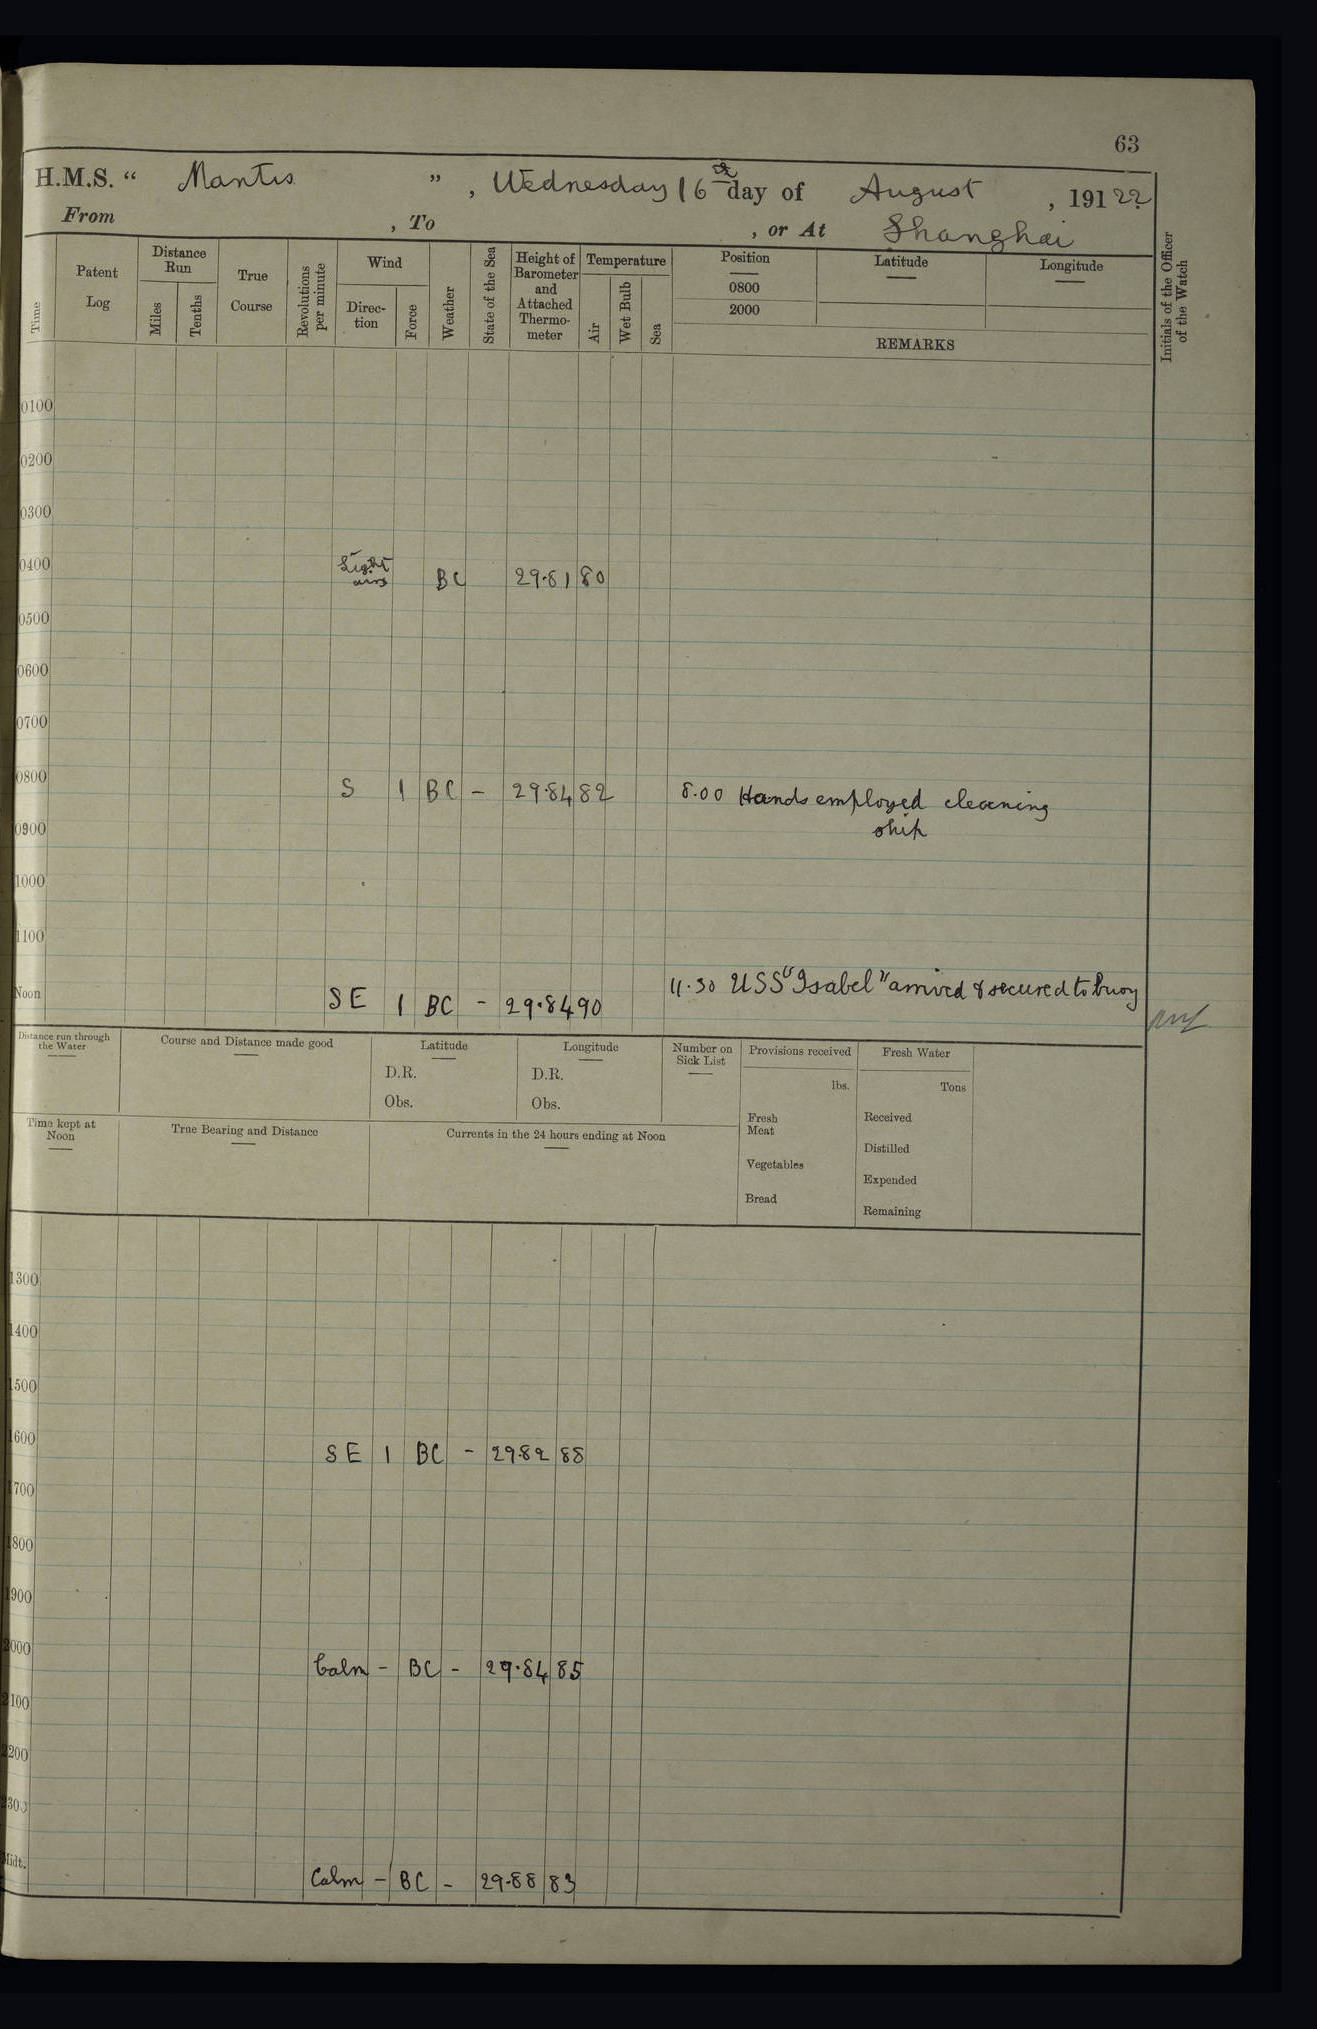 63
H.M.S. “ Mantis ” , Wednesday 16th day of August , 19122
From , To , or At Shanghai
Time
Patent Log
Distance Run
Miles
Tenths
True Course
Revolutions per minute
Wind
Direc-tion
Force
Weather
State of the Sea
Height of Barometer and Attached Thermo-meter
Temperature
Air
Wet Bulb
Sea
Position
0800
2000
Latitude
Longitude
REMARKS
Initials of the Officer of the Watch
0100
0200
0300
0400 Light airs BC 29.81 80
0500
0600
0700
0800 S 1 BC - 29.84 82 8.00 Hands employed cleaning
ship
0900
1000
1100
11.30 USS "Isabel" arrived & secured to buoy
Noon SE 1 BC - 29.84 90
Distance run through the Water
Course and Distance made good
Latitude
D.R.
Obs.
Longitude
D.R.
Obs.
Number on Sick List
Provisions received
lbs.
Fresh Meat
Vegetables
Bread
Fresh Water
Tons
Received
Distilled
Expended
Remaining
Time kept at Noon
True Bearing and Distance
Currents in the 24 hours ending at Noon
1300
1400
1500
1600 SE 1 BC - 29.82 88
1700
1800
1900
2000 Calm - BC - 29.84 85
2100
2200
2300
Midt. Calm - BC - 29.88 83